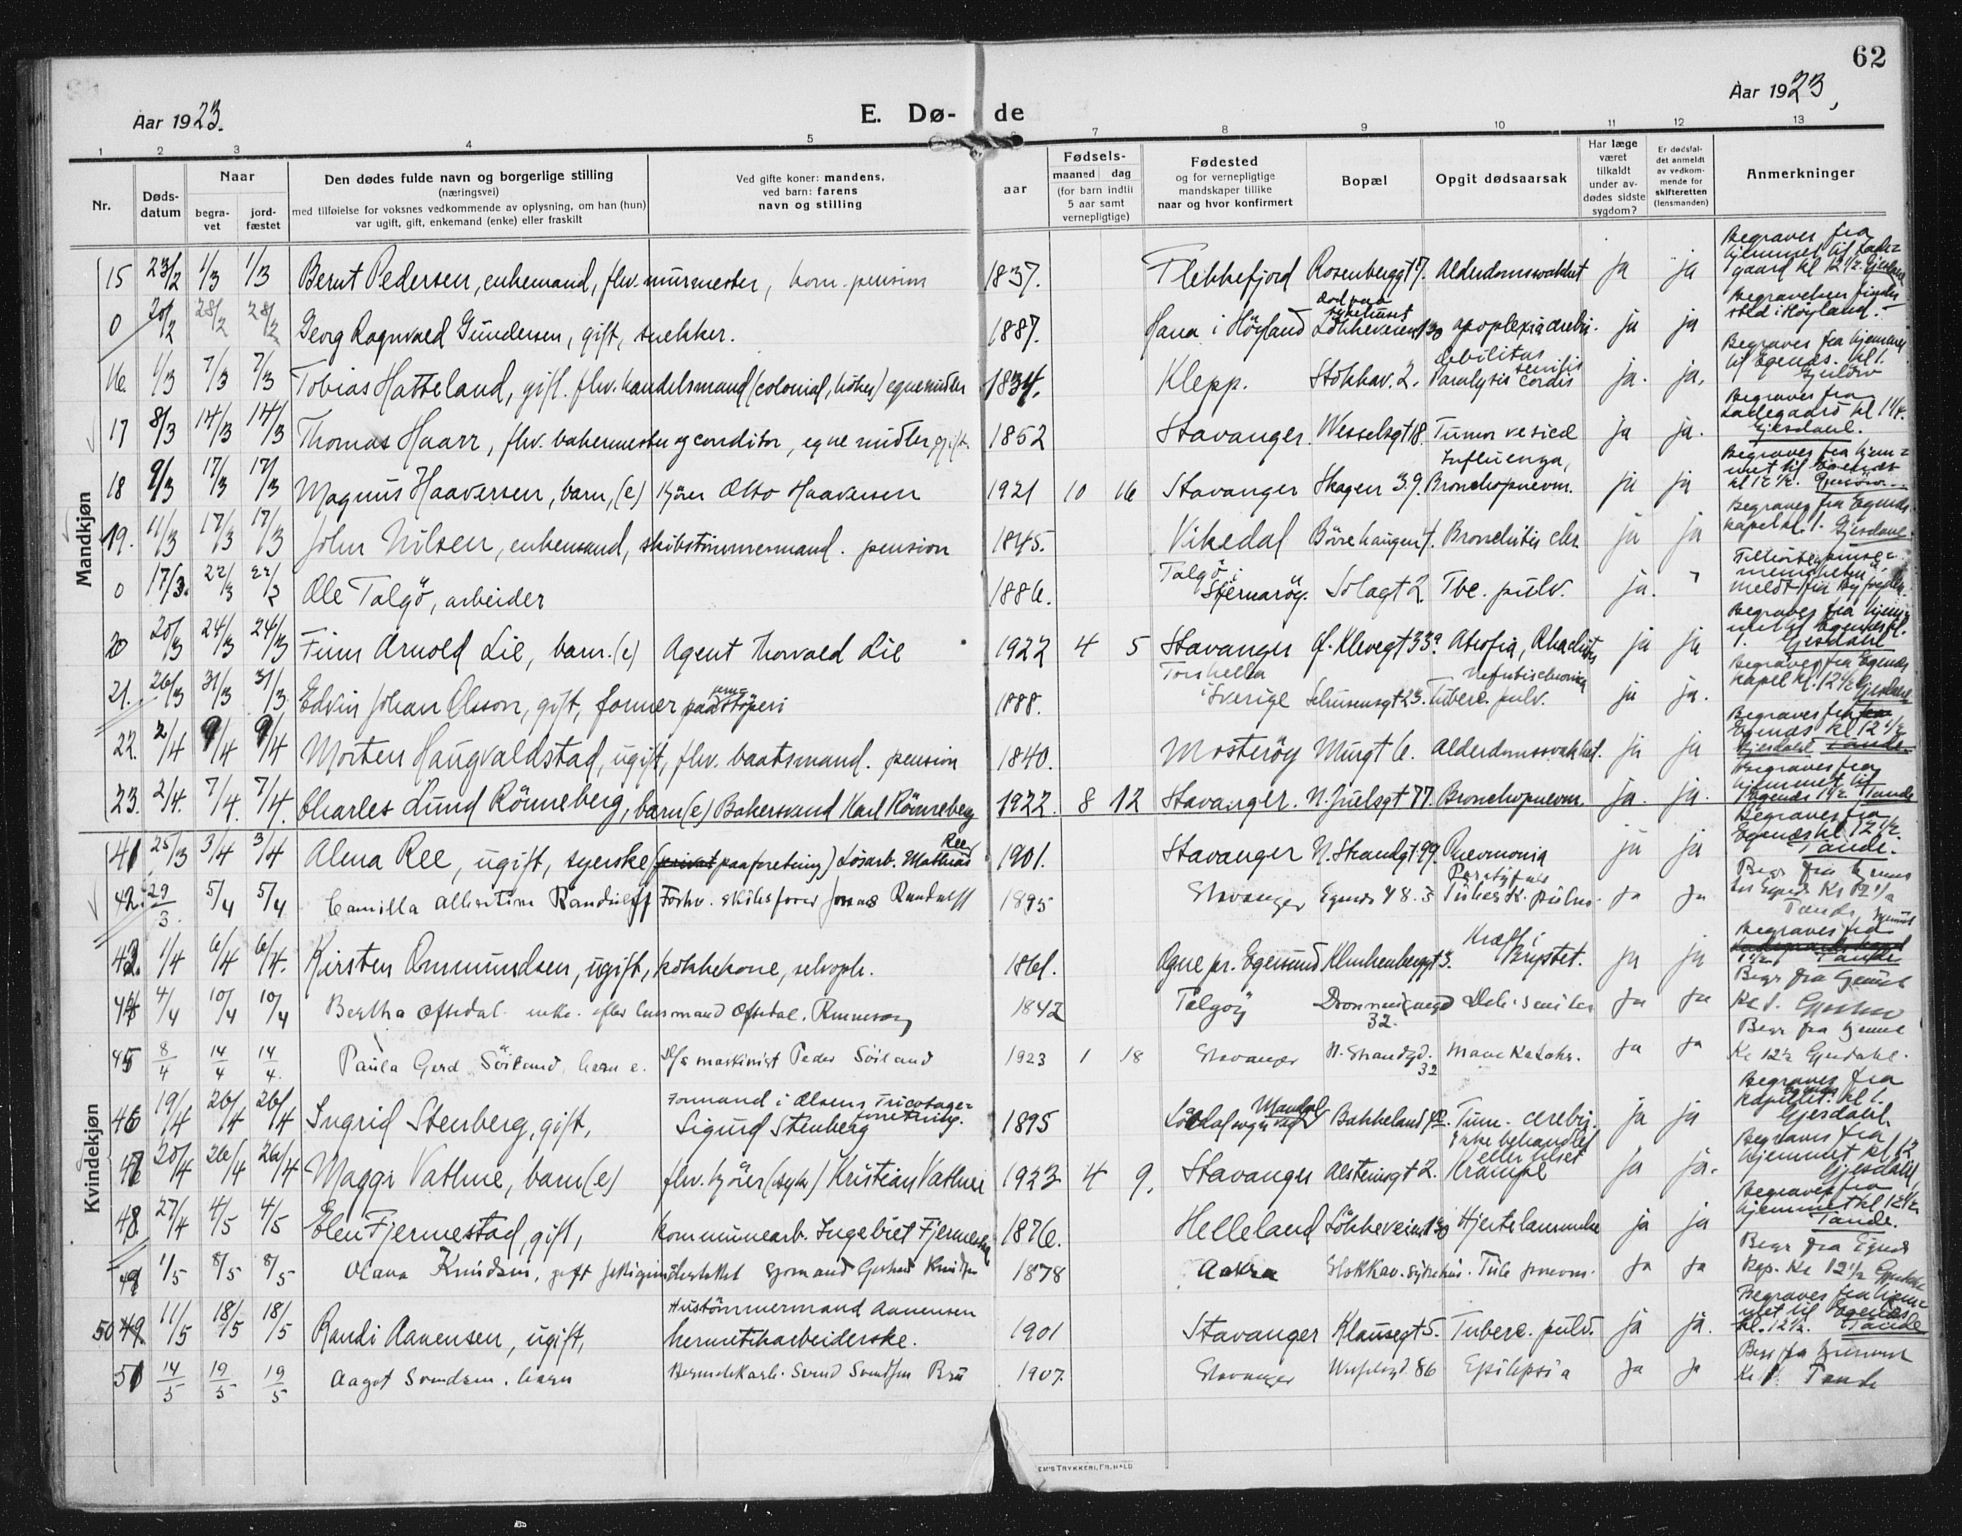 62
Aar 1923.
E. Dø- de
Aar 1923,
1 2 3 4 5 7 8 9 10 11 12 13
Nr.
Døds-
datum
Naar
begra-
vet
jord-
fæstet
Den dødes fulde navn og borgerlige stilling
(næringsvei)
med tilføielse for voksnes vedkommende av oplysning, om han (hun)
var ugift, gift, enkemand (enke) eller fraskilt
Ved gifte koner: mandens,
ved barn: farens
navn og stilling
aar
Fødsels-
maaned dag
(for barn indtil
5 aar samt
vernepligtige)
Fødested
og for vernepligtige
mandskaper tillike
naar og hvor konfirmert
Bopæl
Opgit dødsaarsak
Har læge
været
tilkaldt
under av-
dødes sidste
sygdom?
Er dødsfal-
det anmeldt
av vedkom-
mende for
skifteretten
(lensmanden)
Anmerkninger
Mandkjøn
15 23/2 1/3 1/3 Bernt Pedersen, enkemand, flv. murmester, kom. pension 1837. Flekkefjord Rosenberggt 7. Alderdomssvakhet ja ja
Begraves fra
hjemmet til Lade-
gaard kl 12 1/2. Gjesdahl
0 20/2 28/2 28/2 Georg Ragnvald Gundersen, gift, snekker. 1887. Hana i Höyland Lökkeveien 130 apoplexia cerebri. ja ja
död paa
sykehuset
Begravelsen finder
sted i Höyland.
16 1/3 7/3 7/3 Tobias Hatteland, gift. flv. handelsmand (colonial, höker) egne midler 1834. Klepp. Stokkav. 2. Debilitas senilis Paralysis cordis ja. ja.
Begraves fra hjemmet
til Egenæs. kl 1.
17 8/3 14/3 14/3 Thomas Haarr, flv. bakermester og conditor, egne midler gift. 1852 Stavanger. Wesselsgt 18. Tumor vesicæ ja ja.
Begraves fra
Ladegaard kl 11 1/2.
Gjesdahl.
18 9/3 17/3 17/3 Magnus Haaversen, barn, (e) kjörer Otto Haaversen 1921 10 16 Stavanger Skagen 39. Influenza, Bronchopneum. ja ja
Begraves fra hjem-
met til Egenæs
kl 12 1/2.
19. 11/3 17/3 17/3 John Nilsen, enkemand, skibstömmermand. pension 1845. Vikedal Börehaugen 4. Bronchitis chr. ja ja
Begraves fra Egenæs
kapel kl. 1. Gjesdahl.
0 17/3. 22/3 22/3 Ole Talgö, arbeider 1886. Talgö i Stjernaröy. Solagt 2 Tbc. pulv. ja.
20 20/3 24/3 24/3 Finn Arnold Lie, barn. (e) Agent Thorvald Lie 1922 4 5 Stavanger G. Klevegt 33a Atrofia, Rhachitis ja ja
Begraves fra hjem-
met til Egenæs kl.
1. Gjesdahl
21. 26/3 31/3 31/3 Edvin Johan Olsson, gift, former paa jernstöperi 1888. Torshella i Sverige 23. Nefritis chronica Tuberc. pulv. ja ja.
Begraves fra Egenæs
kapel kl. 12 1/2 Gjesdahl
22. 2/4 9/4 9/4 Morten Haugvaldstad, ugift, flv. baatsmand. pension 1840. Mosteröy Murgt 6. Alderdomssvakhet. ja ja
Begraves fra
Egenæs kl 12 1/2
Gjesdahl Tande.
23. 2/4. 7/4. 7/4. Charles Lund Rönneberg, barn (e) Bakersvend Karl Rönneberg 1922. 8 12 Stavanger. N. Juelsgt 77. Bronchopneum. ja. ja.
Begraves fra
hjemmet til
Egenæs 1 1/2. Tande
Kvindekjøn
41 25/3 3/4 3/4 Alma Ree, ugift, syerske (privat paa foretning) Lösarb. Mathias Ree 1901. Stavanger N. Strandgt 99. Pneumonia ja ja
Begraves fra
Egenæs kl 12 1/2.
Tande.
42. 29/3 5/4 5/4 Camilla Albertine Randulff Forhv. skibsförer Jonas Randulff 1895 Stavanger Egenæs 48. Paratyfus Tuberk. pulm. ja ja
Tande
43. 1/4 6/4 6/4. Kirsten Ommundsen, ugift, kokkekone, selvoph. 1861. Ogne pr. Egersund Klinkenberggt 3. Kræft i Brystet. ja ja
Begraves fra
1 1/2. Tande
44 4/4 10/4 10/4 Bertha Oftedal. enke. efter Oftedal. 1842 Talgöy Dronningens 32. Deb. senilis ja ja
Begr. fra hjemmet
Kl 1.
45 8/4 14/4 14/4. Paula Gerd Söiland, barn e. maskinist Peder Söiland 1923 1 18 Stavanger N. Strandgd. 32 ja ja
Begr fra hjemmet
Kl 12 1/2 Gjesdahl.
46 19/4 26/4 26/4 Ingrid Stenberg, gift, Formand i Olsens Tricotage-foretning. Sigurd Stenberg 1895 Mandal Bakkeland Tum. cerebri. ja ja
Begraves fra
Egenæs
kapellet. kl 1.
Gjesdahl.
47 20/4 26/4 26/4 Maggi Vathne, barn (e) flv. kjörer (syk) Kristian Vathne 1923 4 9. Stavanger Alsteinsgt 2. Ikke behandlet eller tilset Krampe ja ja.
Begraves fra
hjemmet kl 12
Gjesdahl.
48. 27/4 4/5 4/5 Elen Fjermestad, gift, kommunearb. Ingebret Fjermestad 1876. Helleland Lökkeveien 130 Hjertelammelse ja ja
Begraves fra
hjemmet kl 12 1/2
Tande.
49 1/5 8/5 8/5 Olava Knudsen, gift 1878 Aakra Stokkav. sykehus. ja ja
Begr fra Egenæs
Kap. Kl 12 1/2
50 49. 11/5 18/5 18/5 Randi Aanensen, ugift, Hustömmermand Aanensen hermetikarbeiderske. 1901 Stavanger Klausegt 5. Tuberc. pulv. ja ja.
Begraves fra hjem-
met til Egenæs
kl. 12 1/2. Tande
51 14/5 19/5 19/5 Aagot Svendsen. barn 1907. Stavanger 86 Epilepsia ja ja
Begr fra hjemmet
Kl 1 Tande
EN'S TRYKKERI, FR. HALD